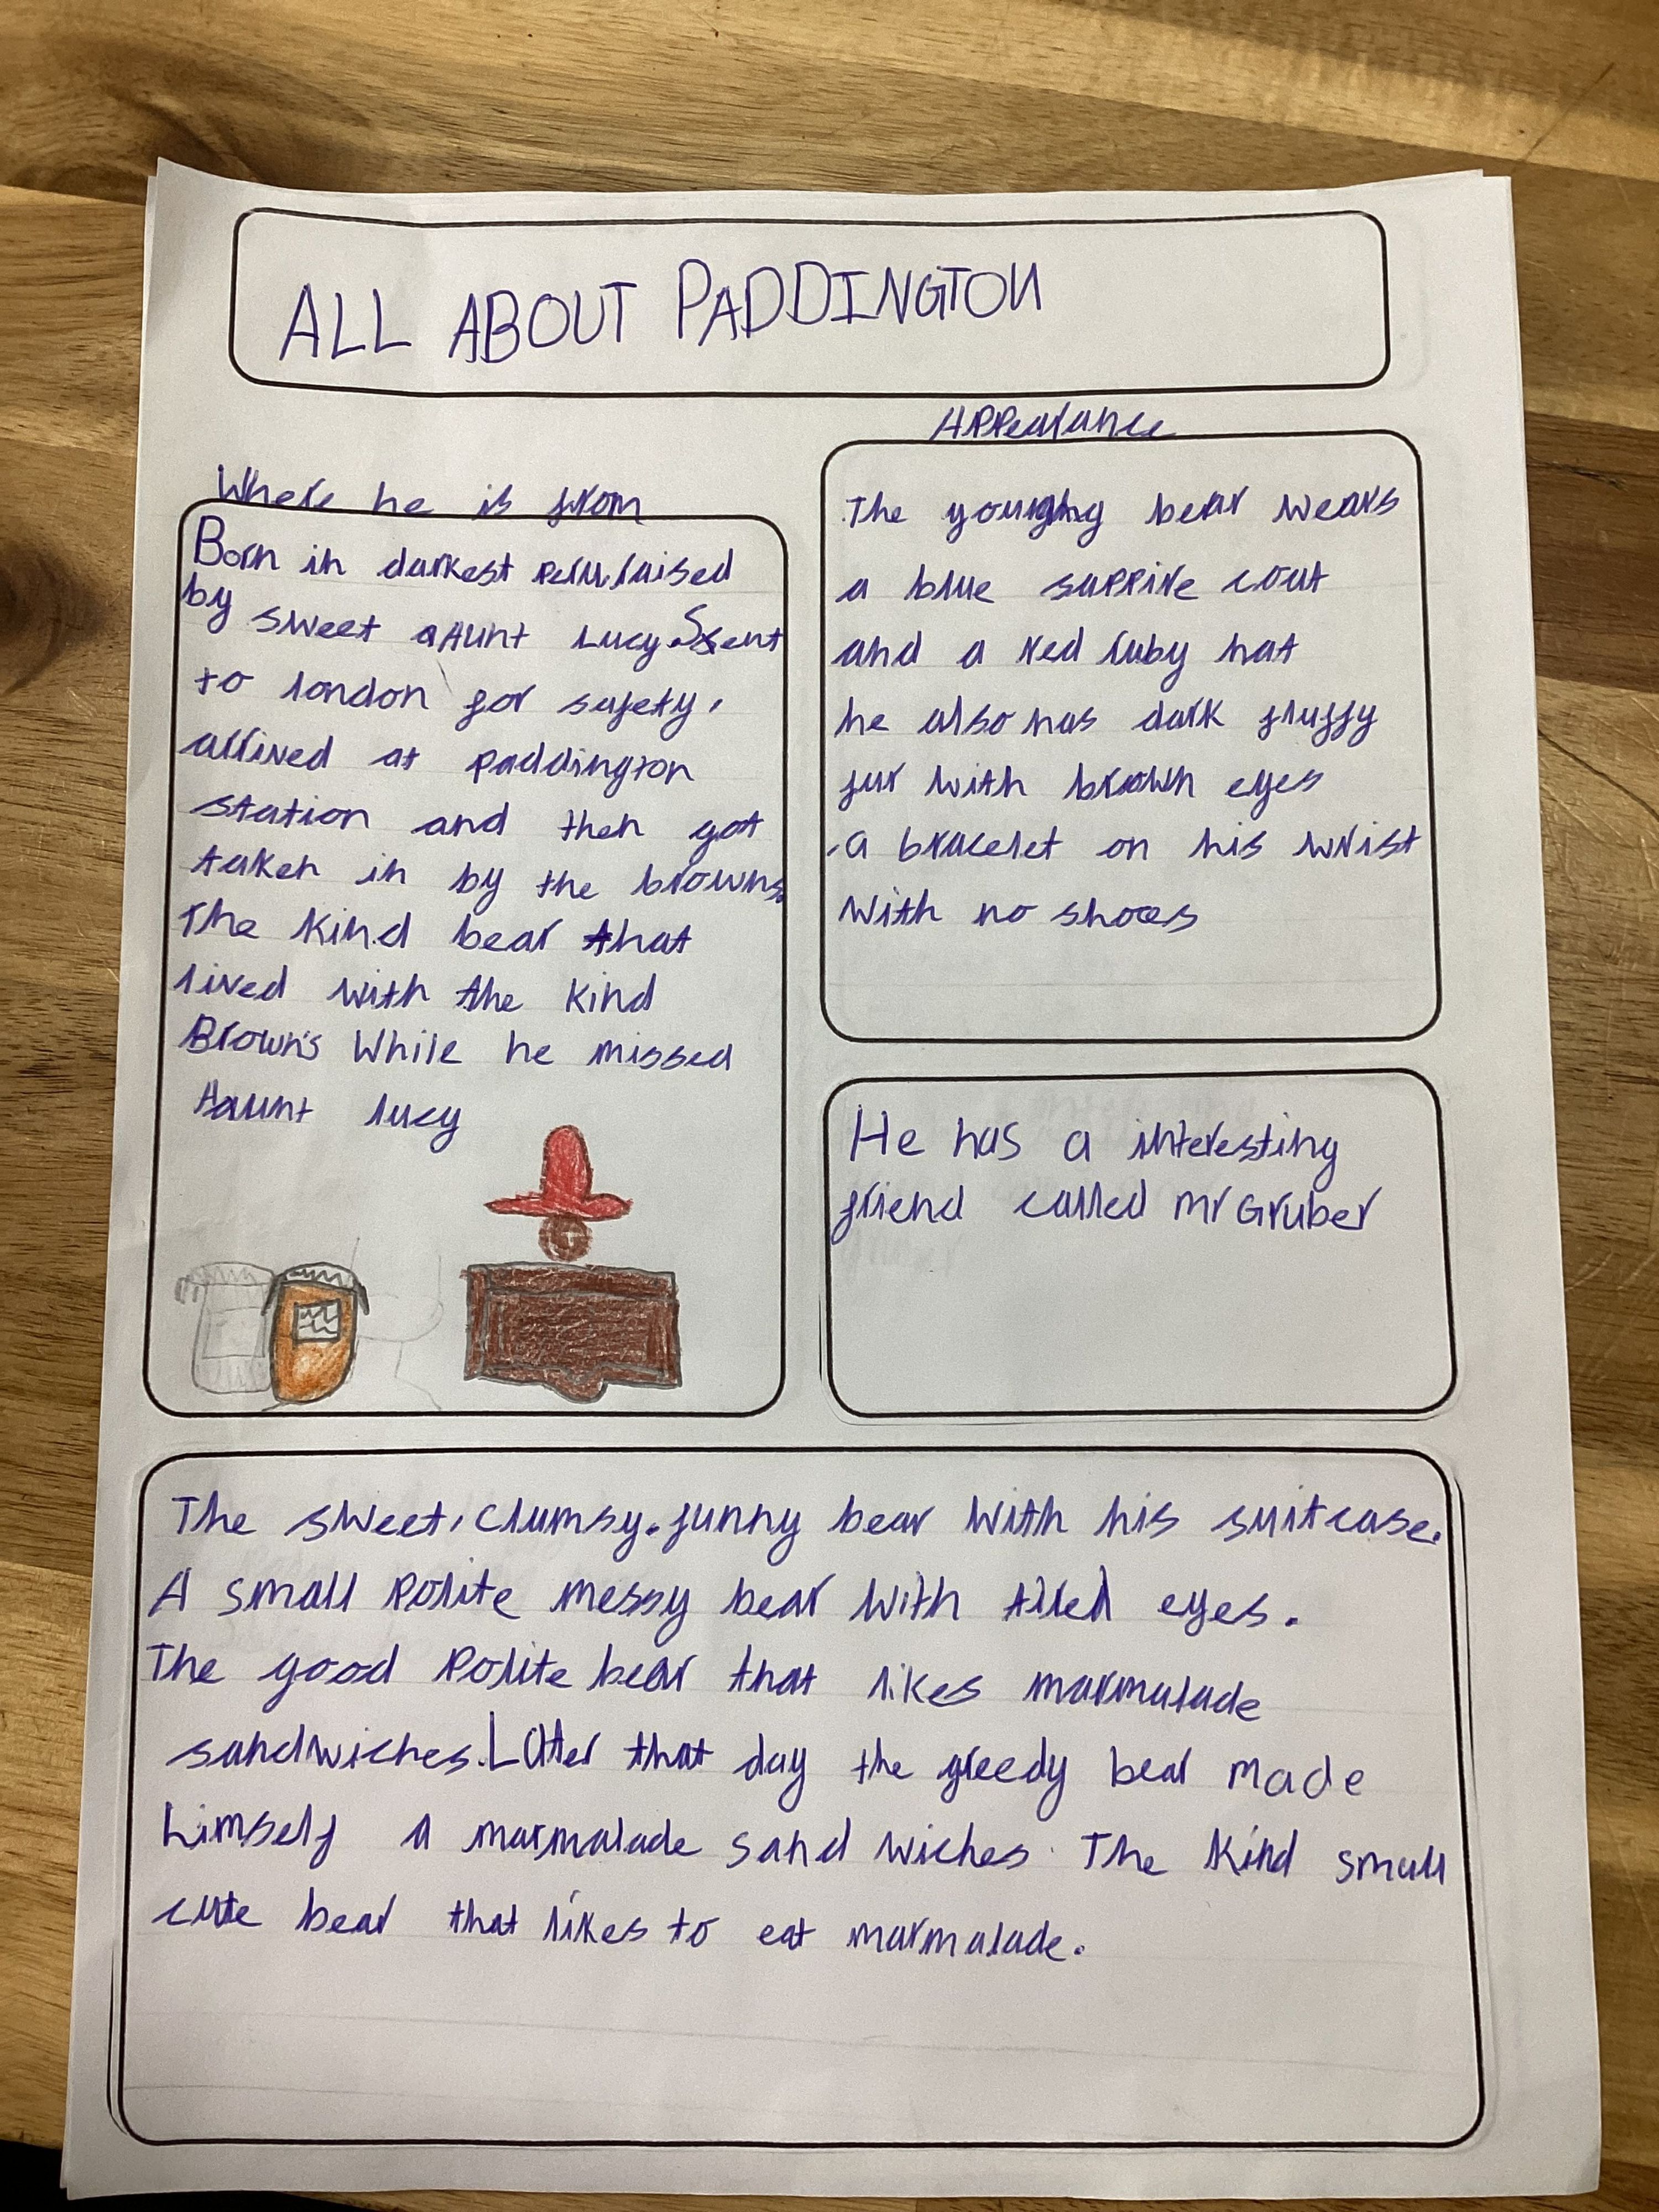 ALL ABOUT PADDINGTON
Where he is from
Born in darkest peru,raised
by sweet aAunt Lucy.Sent
to london for safety,
arrived at paddington
station and then got
taken in by the browns.
The kind bear that
lived with the kind
Brown's While he missed
Aaunt lucy
Appearance
The bear wears
a blue sappire coat
and a red ruby hat
he also has dark fluffy
fur with brown eyes
,a bracelet on his wrist
With no shoes
He has a interesting
friend called mr Gruber
The sweet, clumsy.funny bear with his suitcase.
A small polite messy bear with tired eyes.
The good polite bear that likes marmalade
sandwiches.Later that day the greedy bear made
himself a marmalade sand wiches. The kind small
cute bear that likes to eat marmalade.